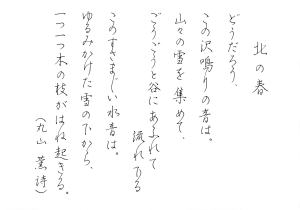 北の春
どうだろう、
この沢鳴りの音は。
山々の雪を集めて、
ごうごうと谷にあふれて
流れてくる
このすさまじい水音は。
ゆるみかけた雪の下から、
一つ一つ木の枝がはね起きる。
(丸山薫詩)